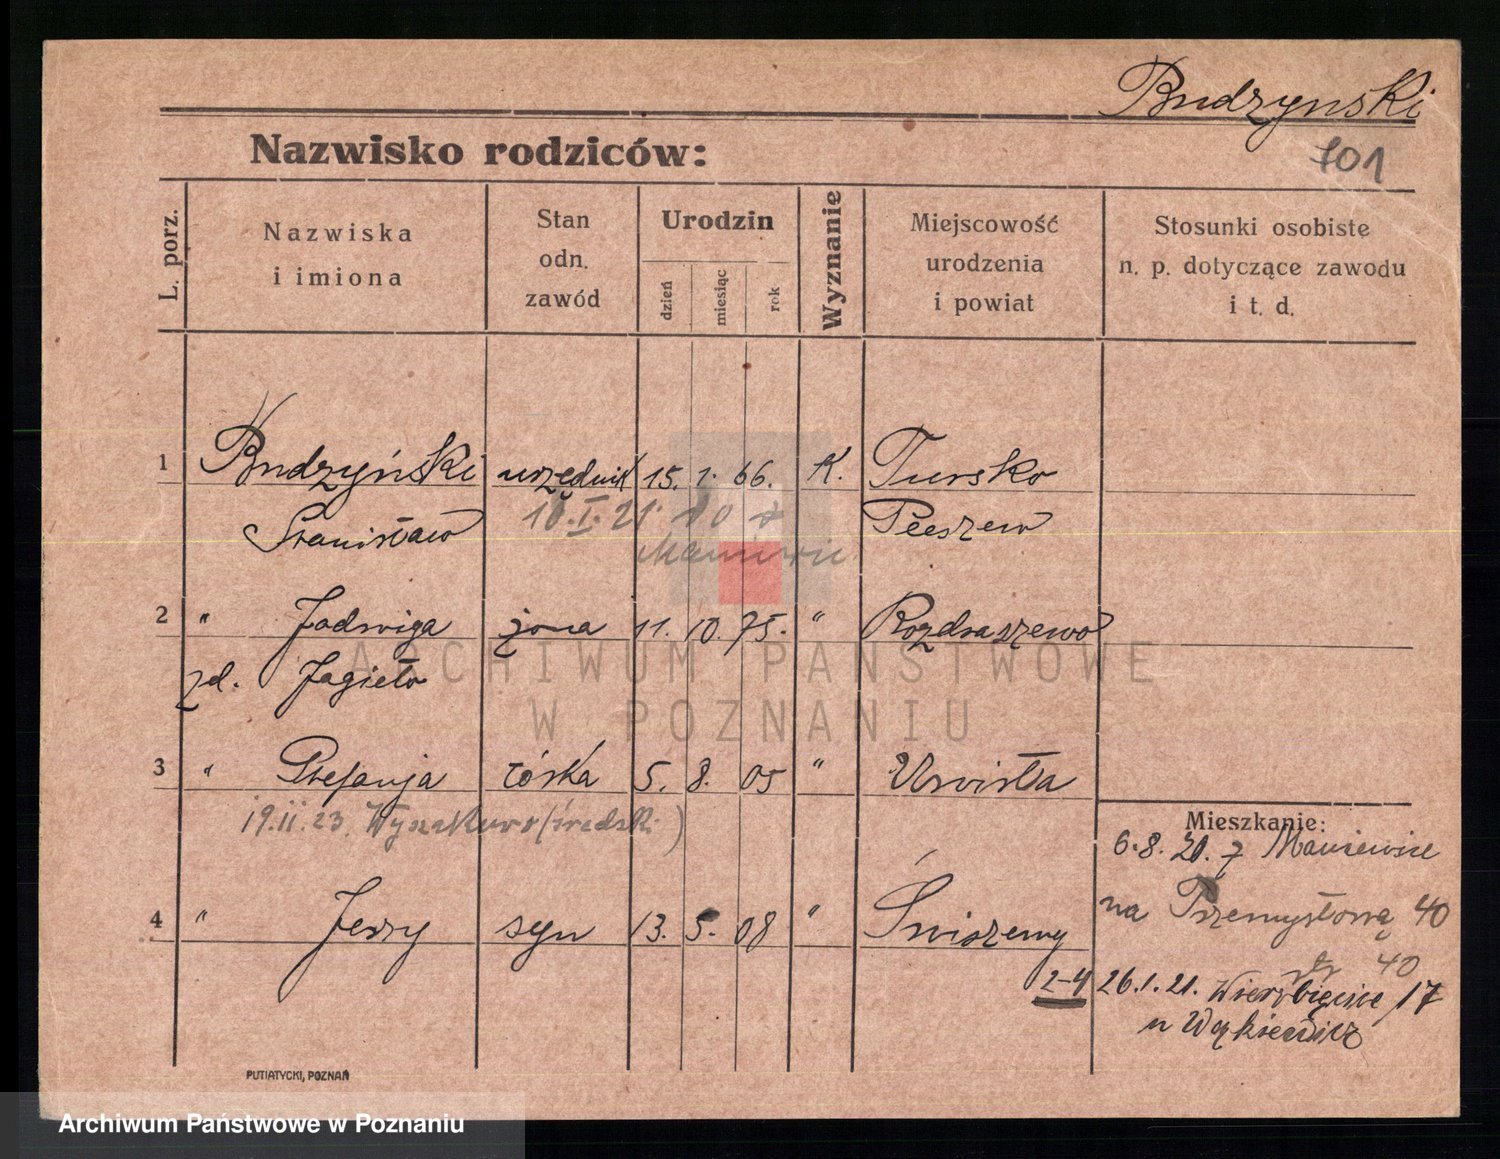 Budzynski
101
Nazwisko rodziców:
L. porz.
Nazwiska
i imiona
Stan
odn.
zawód
Urodzin
dzień
miesiąc
rok
Wyznanie
Miejscowość
urodzenia
i powiat
Stosunki osobiste
n. p. dotyczące zawodu
i t. d.
1 Budzyński urzędnik 15. 1. 66. K. Tursko
Stanisław Pleszew
18.I.21.
Maniewic
2 " Jadwiga żona 11. 10. 75. " Rozdraszewo
zd. Jagieto
ARCHIWUM PAŃSTWOWE
W POZNANIU
3 " Stefanja córka 5. 8. 05 " Uwisła
19.II.23. Wyszakowo (średzki)
Mieszkanie:
6.8.20. z Maniewice
na Przemysłową 40
4 " Jerzy syn 13. 5. 08 " Świszewy
40
2-4 26.1.21. Wierzbięcice 17
u Wąkiewicz
PUTIATYCKI, POZNAŃ
Archiwum Państwowe w Poznaniu